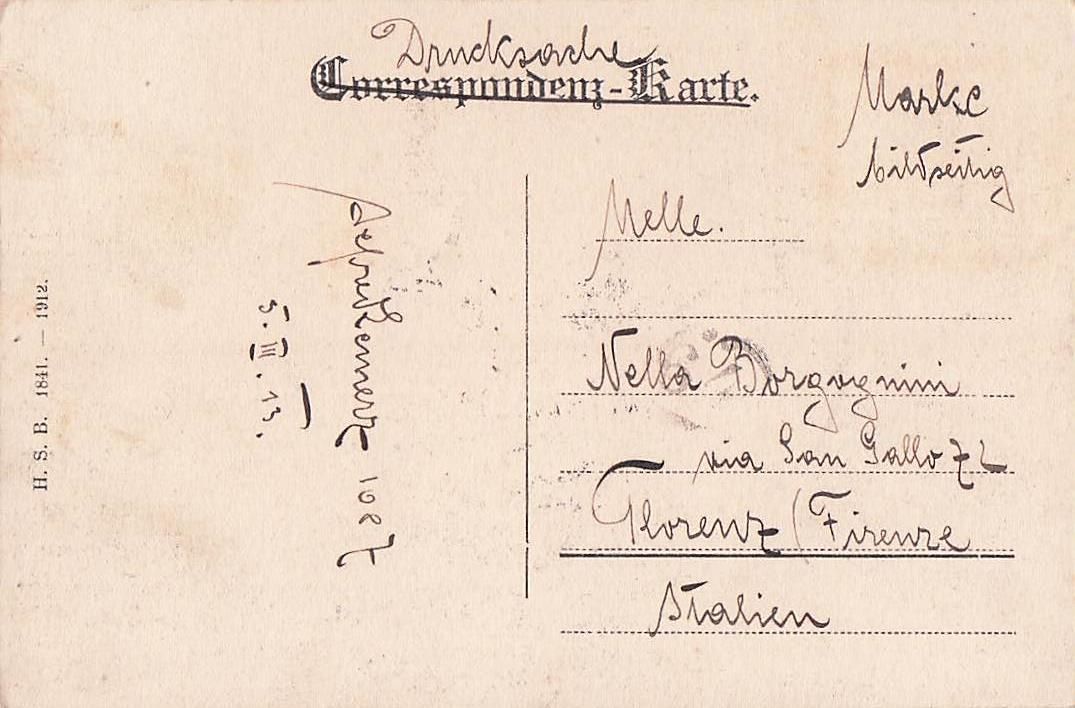 Drucksache
Correspondenz-Karte.
Marke
bildseitig
Melle.
Nella Borgognini
via San Gallo 72
Florenz / Firenze
Italien
1087
5.III.13.
H. S. B. 1841. — 1912.